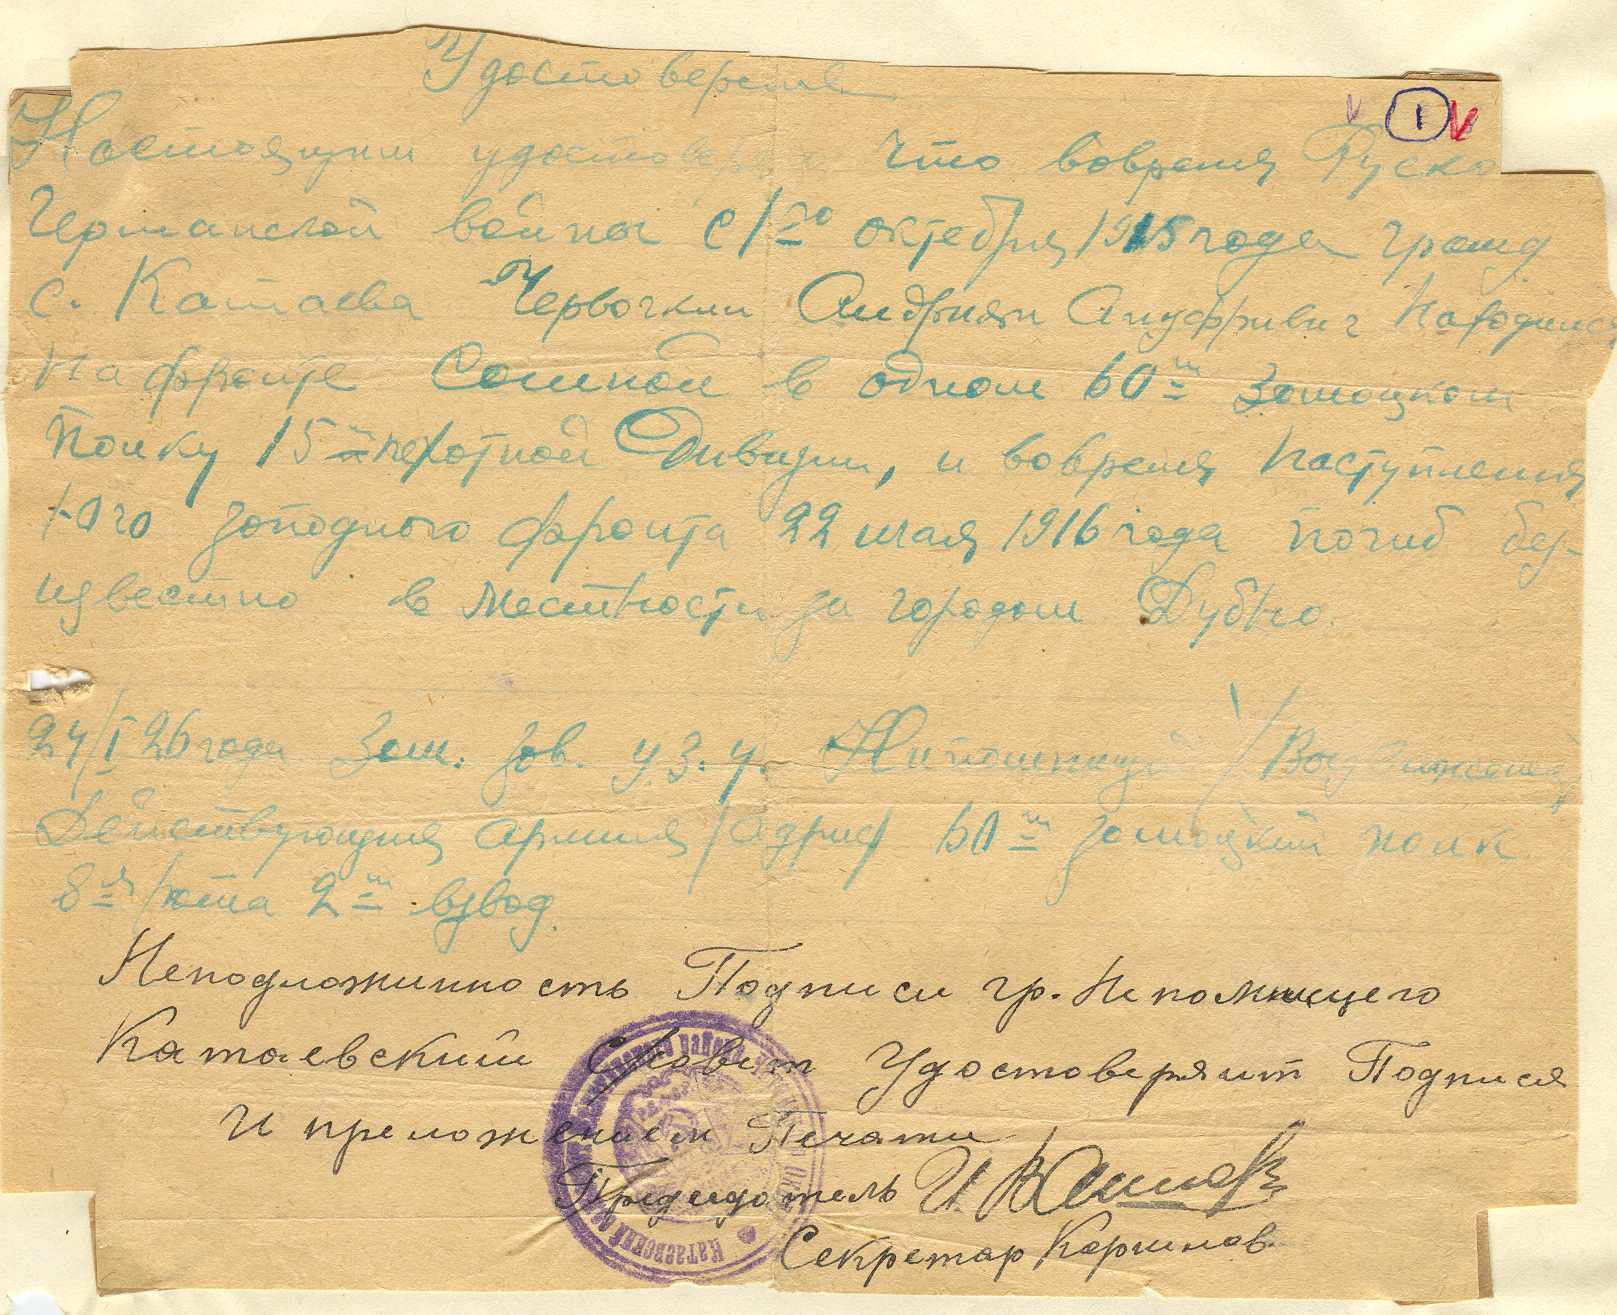 Удостоверение
1
Настоящим удостоверяю что вовремя Руско
Германской войны с 1го октебря 1915 года гражд
с. Катаева Червочкин Андриян Ануфривич находился
На фронте Сомной в одном 60м Замоцком
Полку 15й пехотной Дивизии, и вовремя Наступления
Юго западного фронта 22 мая 1916 года погиб без-
известно в местности за городом Дубно.
24/I 26 года Зам. Зав. У.З.У. Непомнящий
Действующия армия / адрис 60м замоцкий полк
8я рота 2й взвод.
Неподложинность Подписи гр. Непомнещего
Катаевский Совет Удостоверяит Подпися
И преложением Печати
Придсидатель И.
Секретар Коргилов
Катаевский района